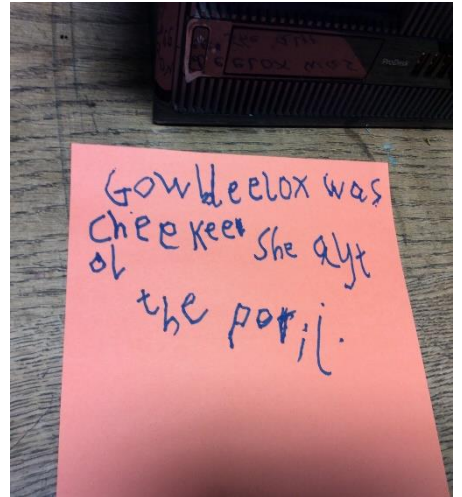 Gowldeelox was
cheekeer she ayt
ol
the porij.